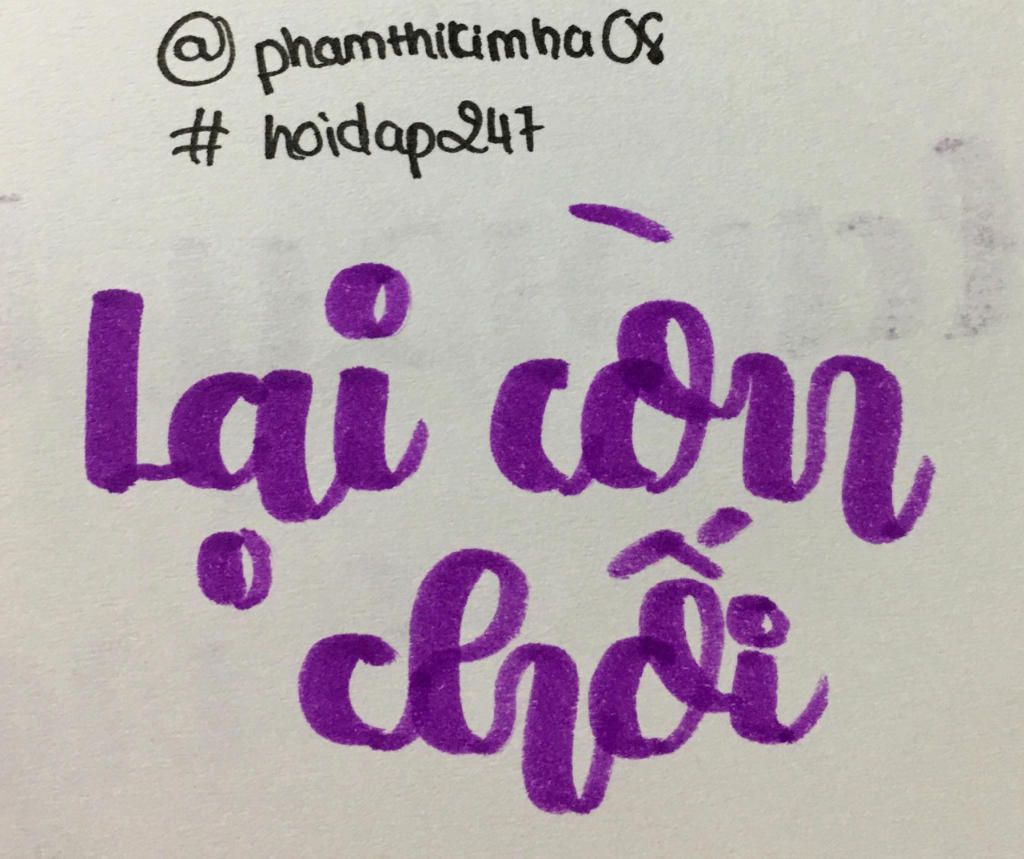 @phamthikimha08
# hoidap247
Lại còn
chối